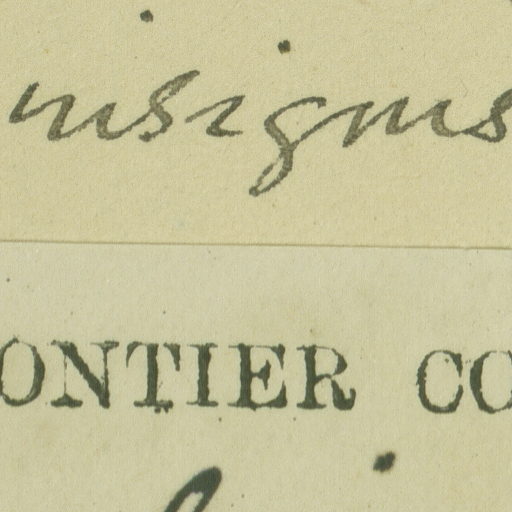 insigns
ONTIER CO